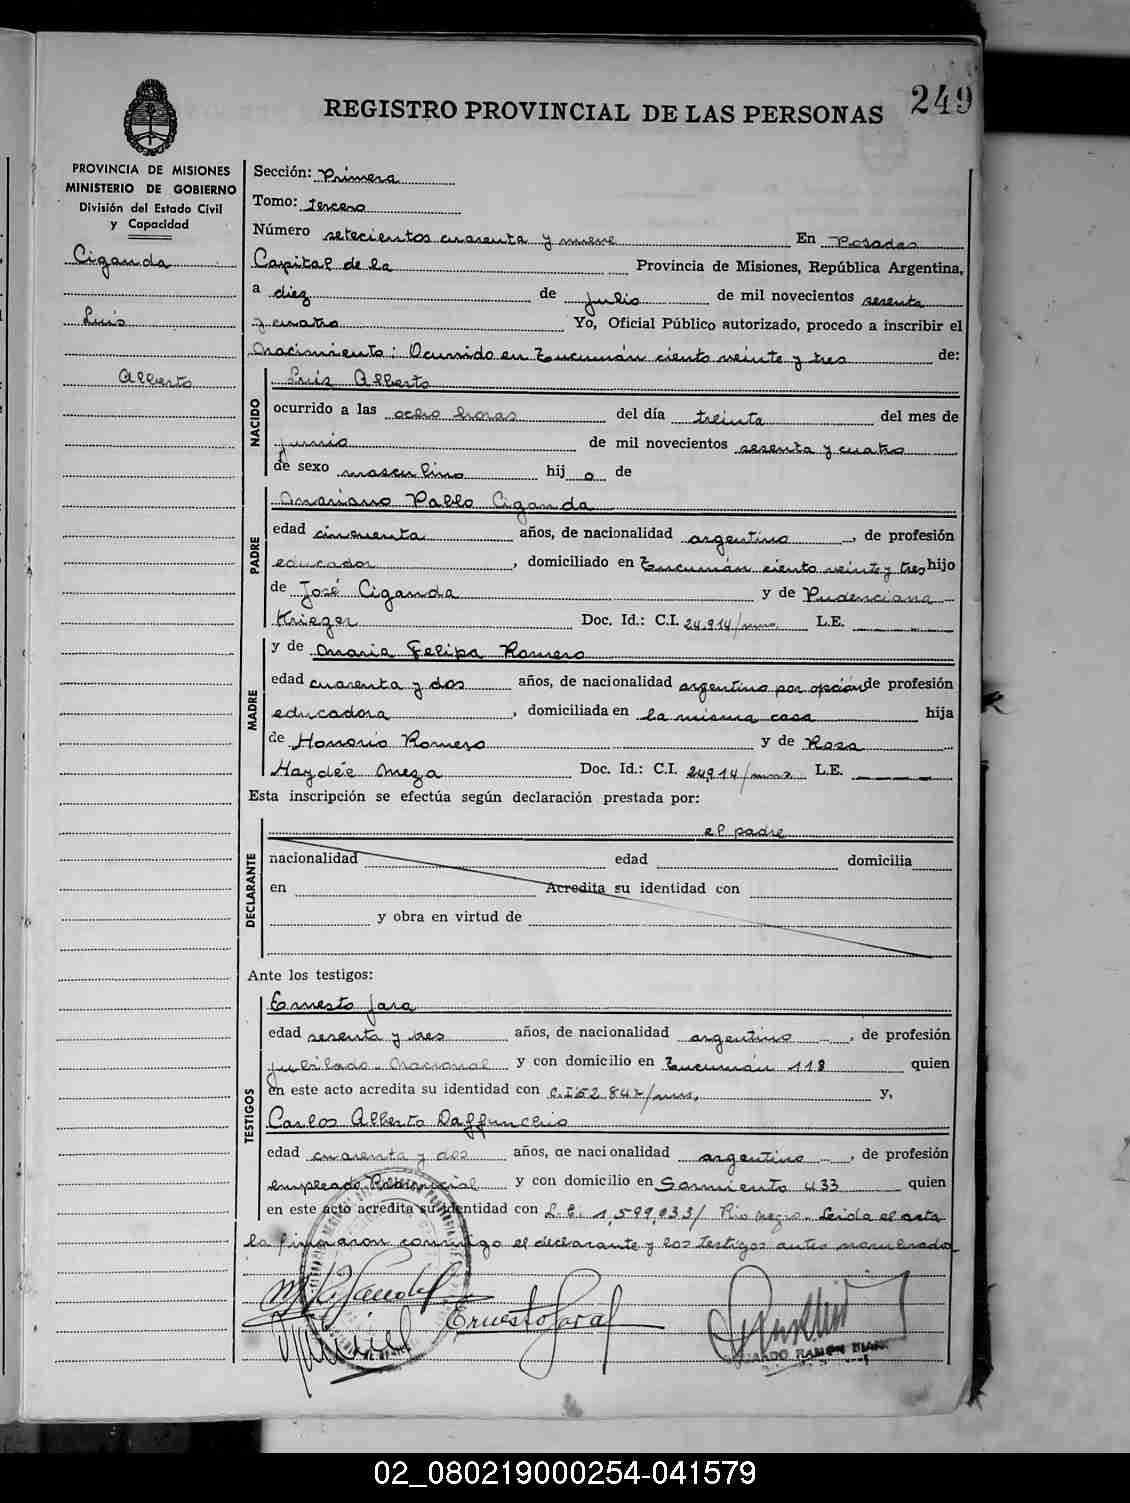 249
REGISTRO PROVINCIAL DE LAS PERSONAS
PROVINCIA DE MISIONES
MINISTERIO DE GOBIERNO
División del Estado Civil
y Capacidad
Ciganda
Luis
Alberto
Sección: Primera
Tomo: tercero
Número setecientos cuarenta y nueve En Posadas
Capital de la Provincia de Misiones, República Argentina,
a diez de julio de mil novecientos sesenta
y cuatro Yo, Oficial Público autorizado, procedo a inscribir el
Nacimiento: Ocurrido en Tucumán ciento veinte y tres de:
NACIDO
Luis Alberto
ocurrido a las ocho horas del día treinta del mes de
junio de mil novecientos sesenta y cuatro
de sexo masculino hij o de
PADRE
Mariano Pablo Ciganda
edad cincuenta años, de nacionalidad argentino, de profesión
educador, domiciliado en Tucumán ciento veinte y tres hijo
de José Ciganda y de Pudenciana
Krieger Doc. Id.: C.I. 24.914/mns. L.E.
MADRE
y de Maria Felipa Romero
edad cuarenta y dos años, de nacionalidad argentina por opción de profesión
educadora, domiciliada en la misma casa hija
de Honorio Romero y de Rosa
Haydée Meza Doc. Id.: C.I. 24914/mns. L.E.
Esta inscripción se efectúa según declaración prestada por:
DECLARANTE
el padre
nacionalidad edad domicilia
en Acredita su identidad con
y obra en virtud de
Ante los testigos:
TESTIGOS
Ernesto Jara
edad sesenta y tres años, de nacionalidad argentino, de profesión
jubilado Nacional y con domicilio en Tucumán 118 quien
en este acto acredita su identidad con C.I. 52.847/mns. y,
Carlos Alberto Daffunchio
edad cuarenta y dos años, de nacionalidad argentino, de profesión
empleado Provincial y con domicilio en Sarmiento 433 quien
en este acto acredita su identidad con L.E. 1,599,933/ Rio Negro. Leida el acta
la firmaron conmigo el declarante y los testigos antes nombrados
Ernesto Jara
RAMON
02_080219000254-041579